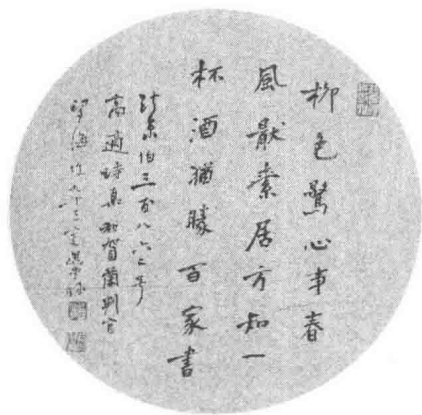 柳色驚心事春
風厭索居方知一
杯酒猶勝百家書
法京伯三百八六二号
高適詩集和賀蘭判官
望海作九十三叟選堂